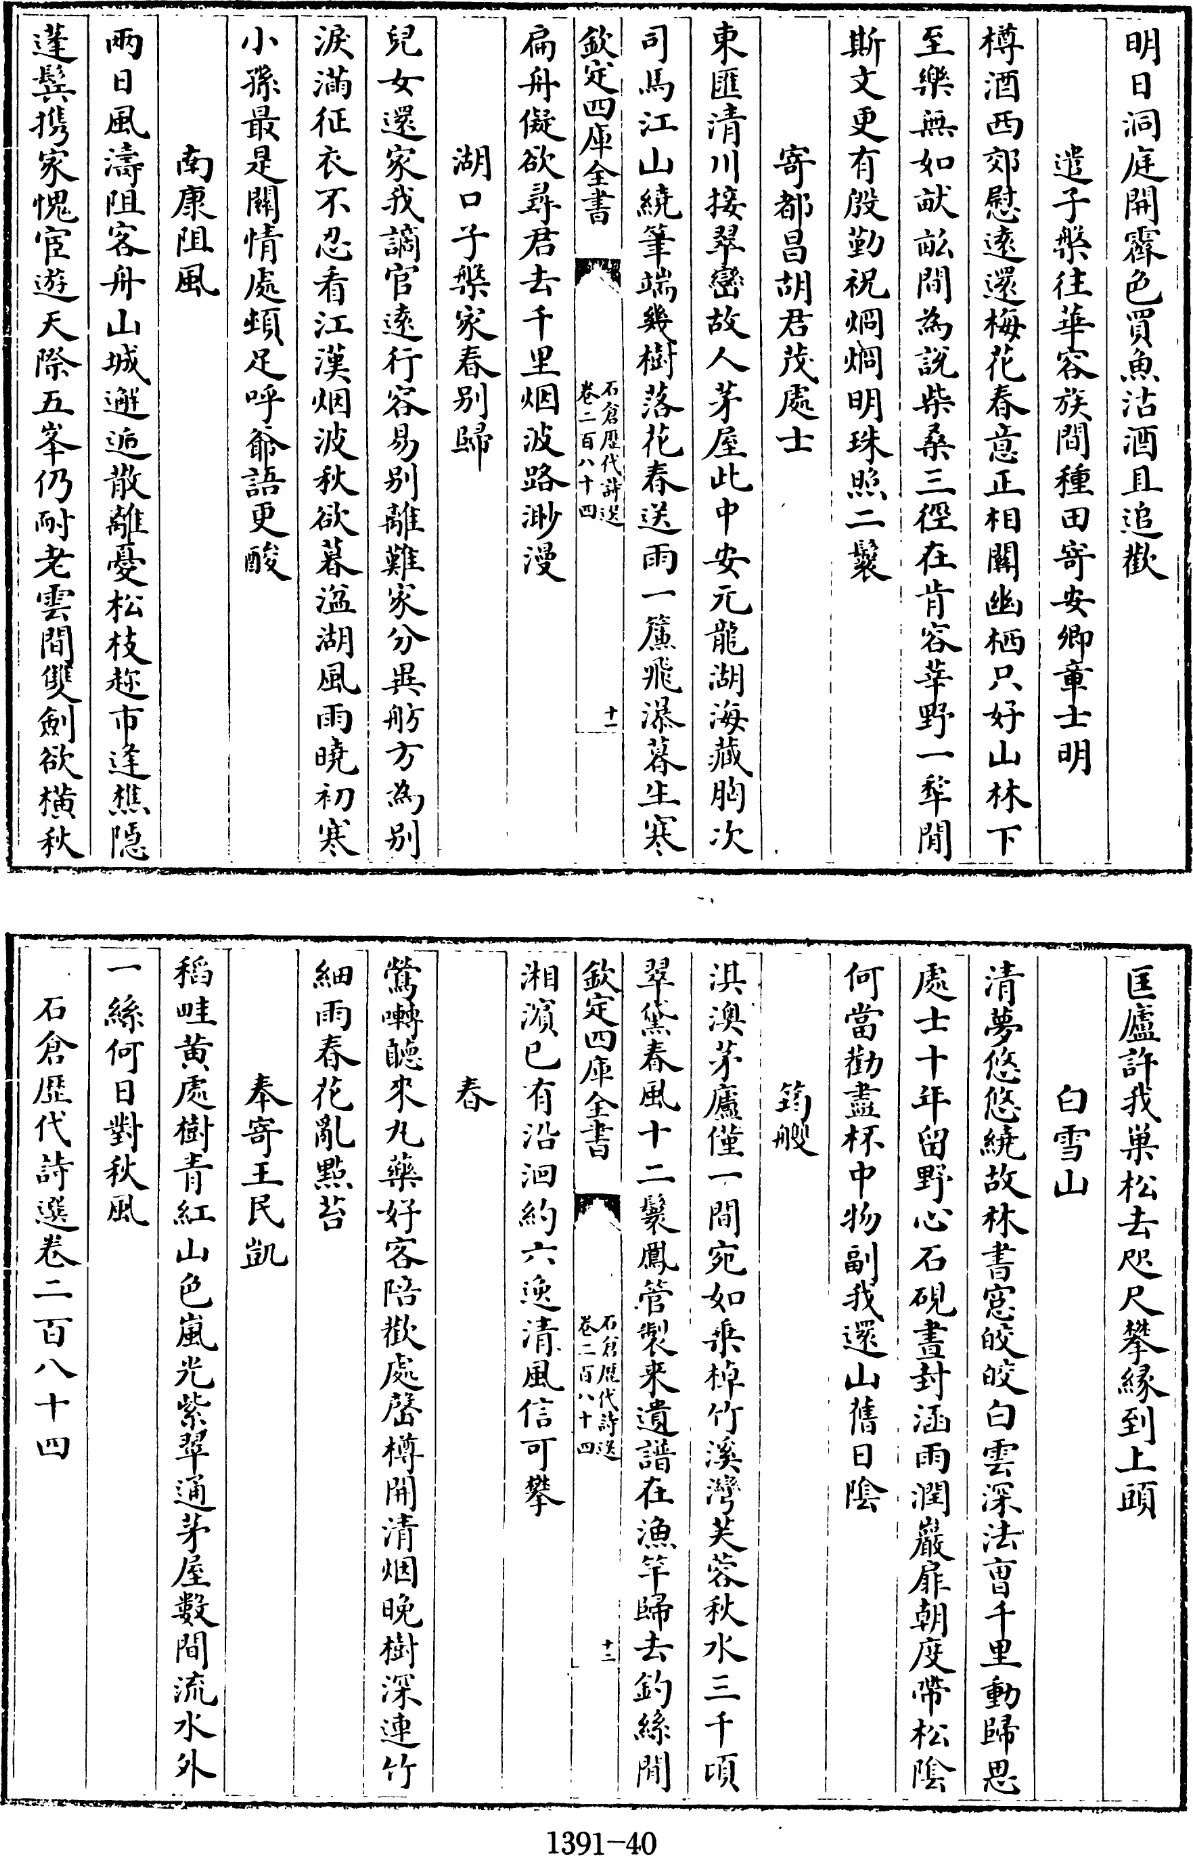 明日洞庭開霽色買魚沽酒且追歡
遣子槃往華容族間種田寄安卿章士明
樽酒西郊慰遠還梅花春意正相關幽栖只好山林下
至樂無如畎畝間為説柴桑三徑在肯容莘野一犂閒
斯文更有殷勤祝烱烱明珠照二鬟
寄都昌胡君茂處士
東匯清川接翠巒故人茅屋此中安元龍湖海藏胸次
司馬江山繞筆端幾樹落花春送雨一簾飛瀑暮生寒
欽定四庫全書
石倉歴代詩選
卷二百八十四
十一
扁舟儗欲尋君去千里烟波路渺漫
湖口子槃家春别歸
兒女還家我謫官遠行容易别離難家分異舫方為别
淚滿征衣不忍看江漢烟波秋欲暮湓湖風雨曉初寒
小孫最是關情處頓足呼爺語更酸
南康阻風
兩日風濤阻客舟山城邂逅散離憂松枝趂市逢樵隱
蓬鬂攜家愧宦遊天際五峯仍耐老雲間雙劍欲横秋
匡廬許我巢松去咫尺攀縁到上頭
白雪山
清夢悠悠繞故林書窻皎皎白雲深法曹千里動歸思
處士十年留野心石硯晝封涵雨潤巖扉朝度帶松陰
何當勸盡杯中物副我還山舊日陰
筠艘
淇澳茅廬僅一間宛如乘棹竹溪灣芙蓉秋水三千頃
翠黛春風十二鬟鳳管製來遺譜在漁竿歸去釣絲閒
欽定四庫全書
石倉歴代詩選
卷二百八十四
十二
湘濵已有沿洄約六逸清風信可攀
春
鶯囀聽來九藥好客陪歡處罄樽開清烟晚樹深連竹
細雨春花亂點苔
奉寄王民凱
稻畦黄處樹青紅山色嵐光紫翠通茅屋數間流水外
一絲何日對秋風
石倉歴代詩選卷二百八十四
1391-40